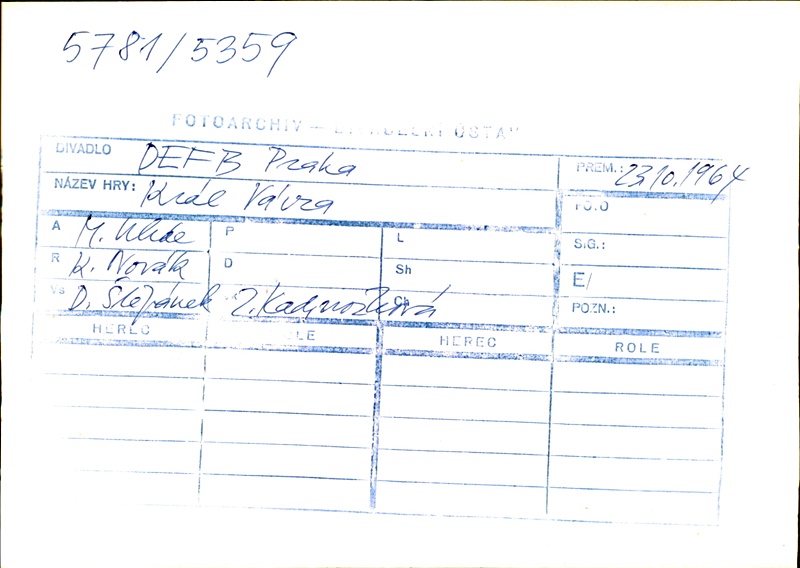 5781/5359
FOTOARCHIV —
DIVADLO DEFB Praha PREM.: 23.10.1964
NÁZEV HRY: Král Vávra FOTO
A M. Uhde P L S.G.:
R K. Novák D Sh E/
Vs D. Štěpánek Ch POZN.:
HEREC ROLE HEREC ROLE